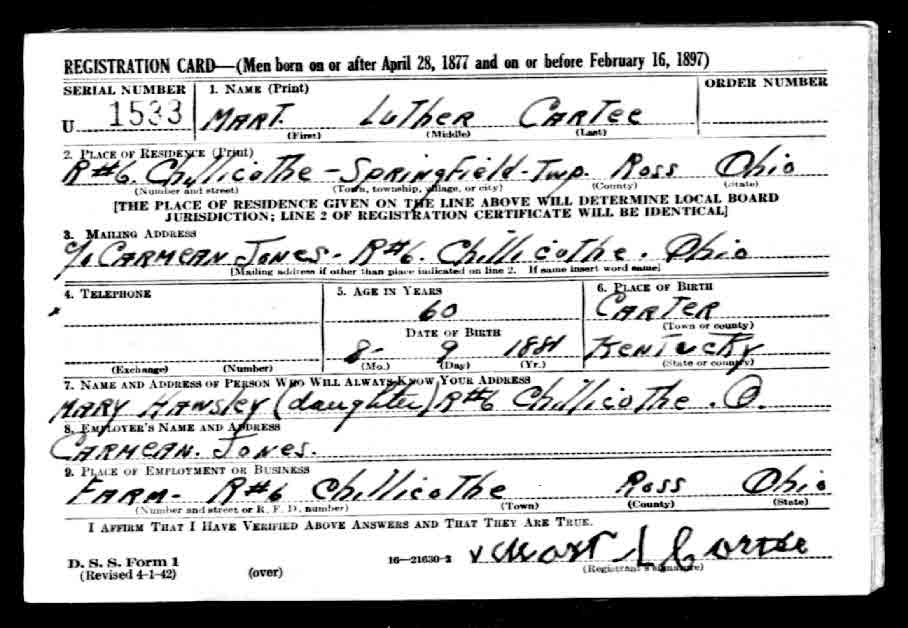 REGISTRATION CARD—(Men born on or after April 28, 1877 and on or before February 16, 1897)
SERIAL NUMBER 1. NAME (Print) ORDER NUMBER
U 1533 MART. LUTHER CARTEE
(First) (Middle) (Last)
2. PLACE OF RESIDENCE (Print)
R#6. Chillicothe - Springfield - Twp. Ross Ohio
(Number and street) (Town, township, village, or city) (County) (State)
[THE PLACE OF RESIDENCE GIVEN ON THE LINE ABOVE WILL DETERMINE LOCAL BOARD
JURISDICTION; LINE 2 OF REGISTRATION CERTIFICATE WILL BE IDENTICAL]
3. MAILING ADDRESS
c/o CARMEAN JONES - R#6. Chillicothe. Ohio
[Mailing address if other than place indicated on line 2. If same insert word same]
4. TELEPHONE 5. AGE IN YEARS 6. PLACE OF BIRTH
60 CARTER
DATE OF BIRTH (Town or county)
8- 9 1881 KENTUCKY
(Exchange) (Number) (Mo.) (Day) (Yr.) (State or country)
7. NAME AND ADDRESS OF PERSON WHO WILL ALWAYS KNOW YOUR ADDRESS
MARY HANSLEY (daughter) R#6 Chillicothe. O.
8. EMPLOYER'S NAME AND ADDRESS
CARMEAN. JONES.
9. PLACE OF EMPLOYMENT OR BUSINESS
FARM- R#6 Chillicothe Ross Ohio
(Number and street or R. F. D. number) (Town) (County) (State)
I AFFIRM THAT I HAVE VERIFIED ABOVE ANSWERS AND THAT THEY ARE TRUE.
D. S. S. Form 1 16—21630-2 x Mart L Cartee
(Revised 4-1-42) (over) (Registrant's signature)